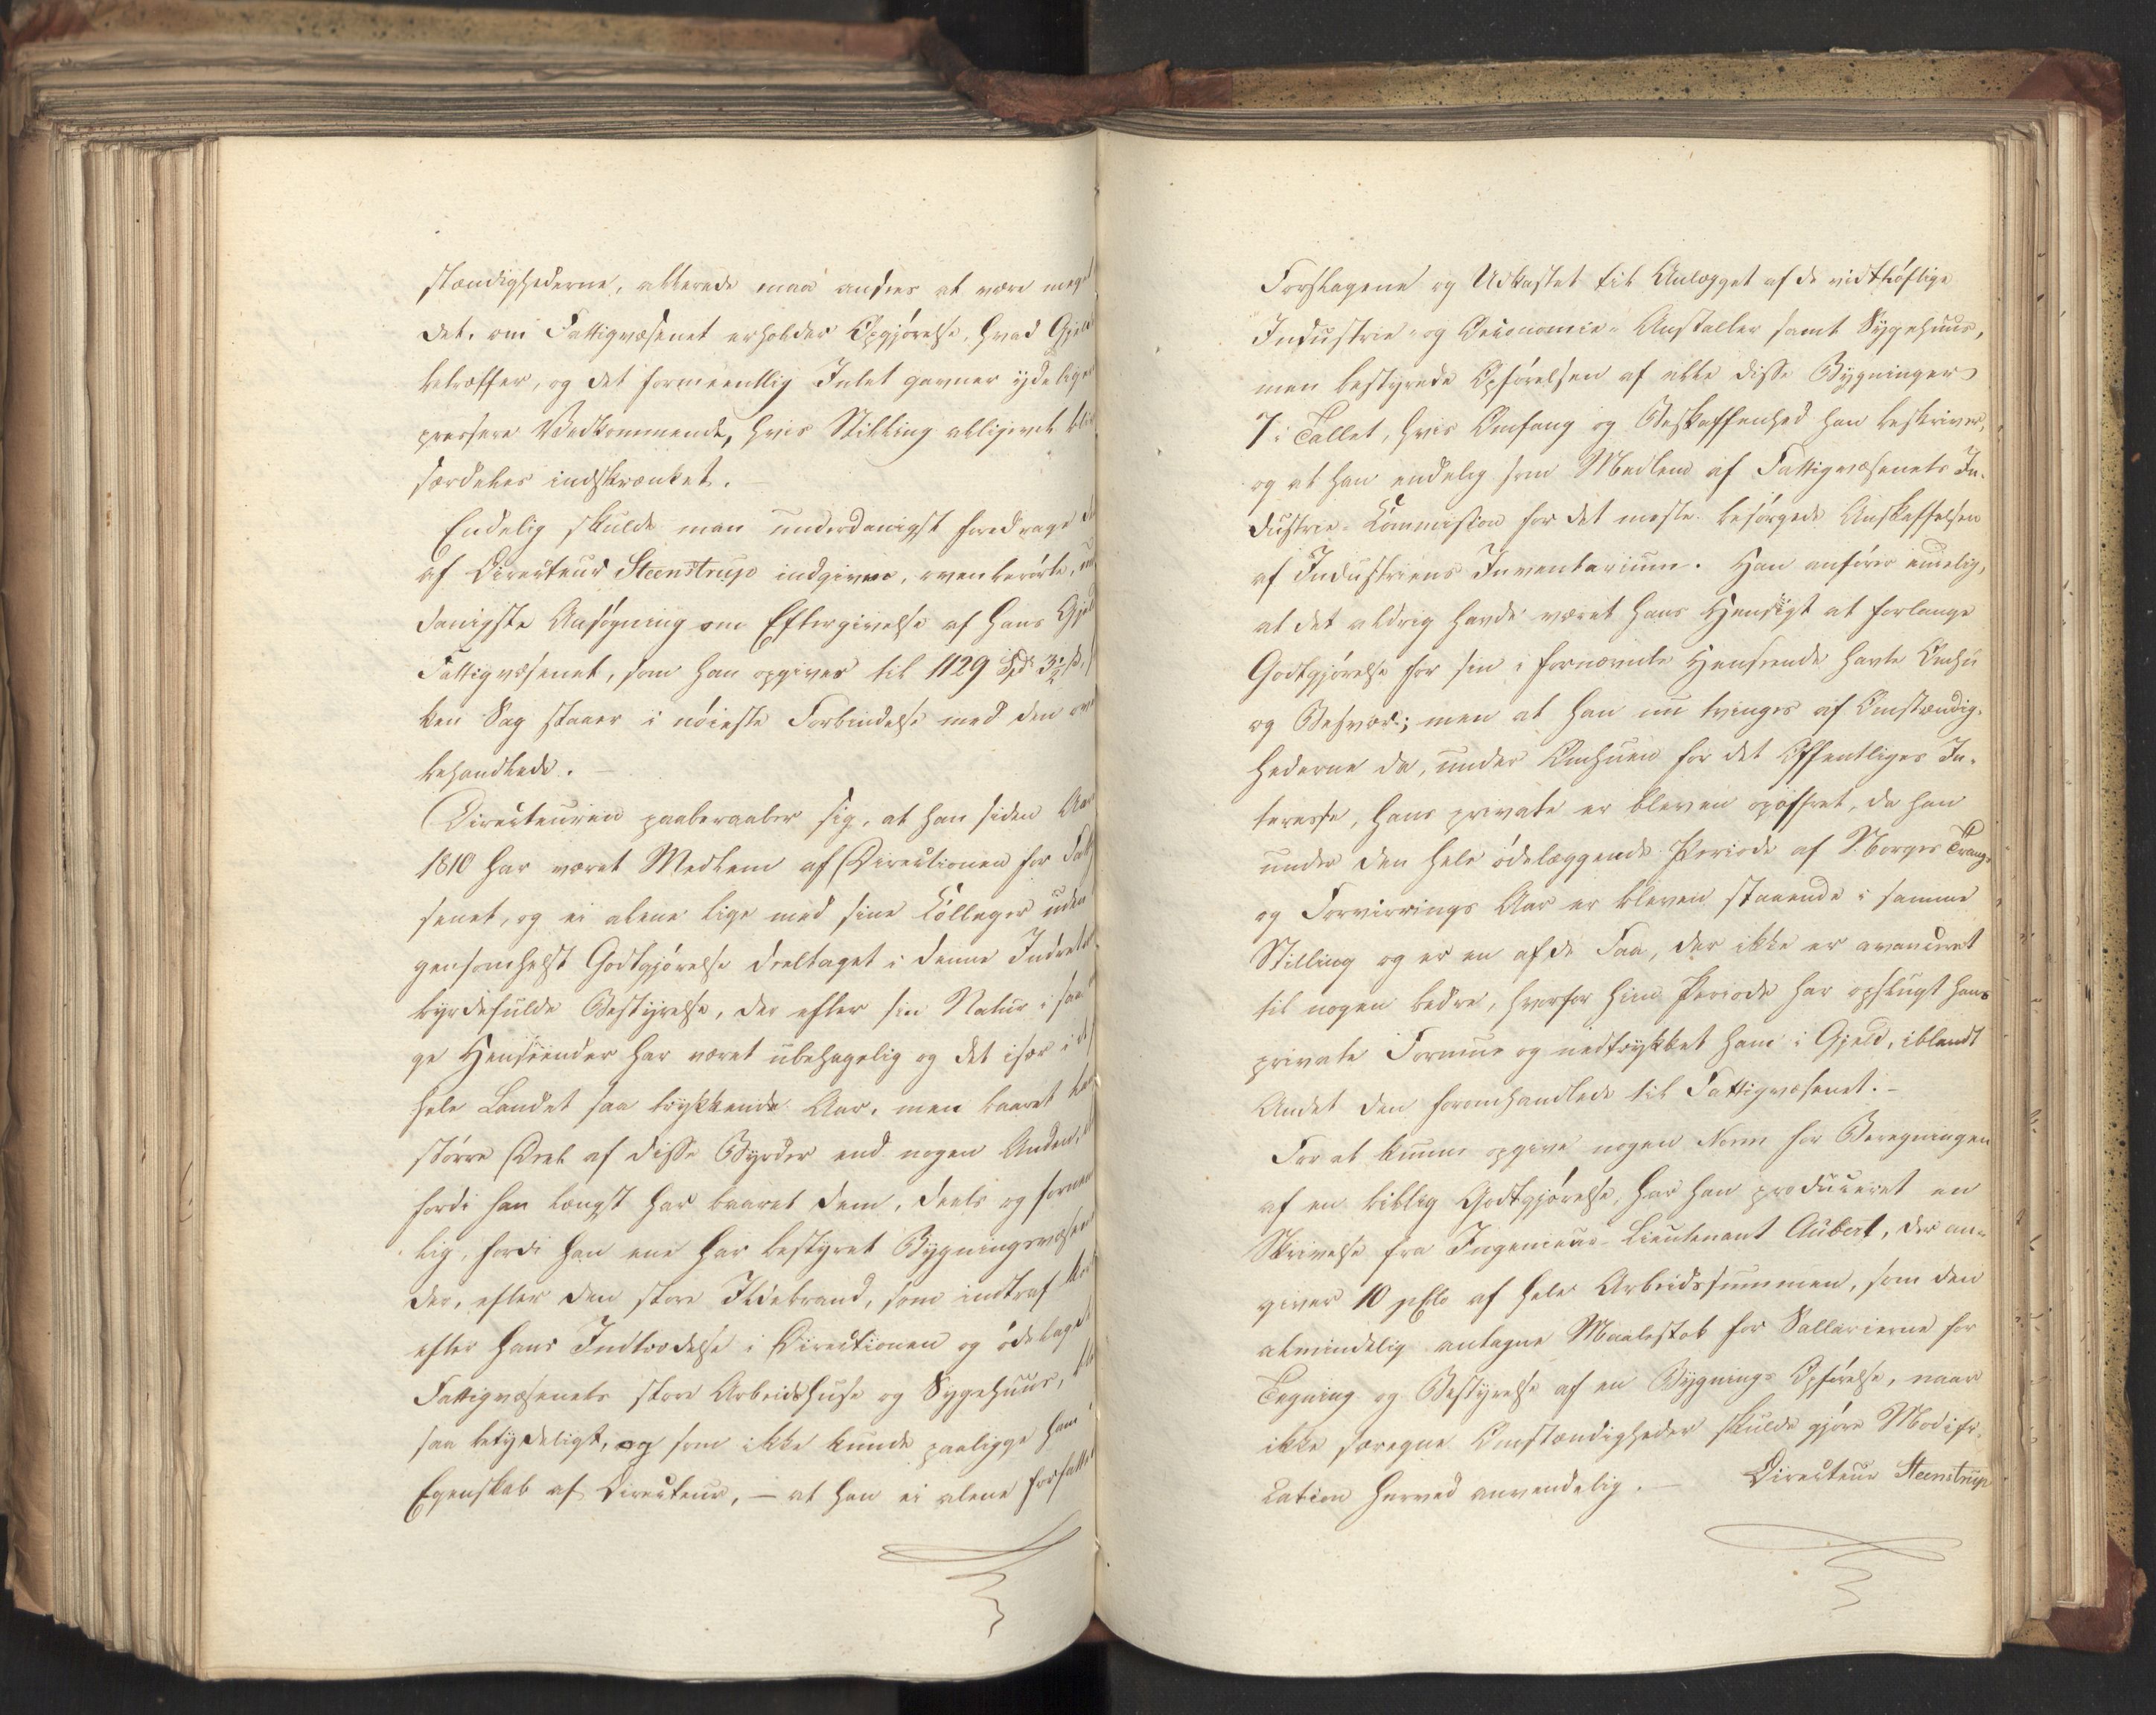 stændighederne, allerede maa ansees at være meget
det, om Fattigvæsenet erholder Opgjørelse, hvad Gjeld
betræffer, og det formeentlig Intet gavner ydeligere
pressere Vedkommende, hvis Stilling alligevel bliv
særdeles indskrænket.
Endelig skulde man underdanigst foredrage d
af Directeur Steenstrup indgivne, ovenberørte, un
danigste Ansøgning om Eftergivelse af hans Gjeld
Fattigvæsenet, som han opgiver til 1129 Spd 3½ s,
ken Sag staaer i nøieste Forbindelse med den ove
behandlede.
Directeuren paaberaaber sig, at han siden Aar
1810 har været Medlem af Directionen for Fatt
senet, og ei alene lige med sine Colleger uden
gensomhelst Godtgjørelse deeltaget i denne Indret
byrdefulde Bestyrelse, der efter sin Natur i saa
ge Henseender har været ubehagelig og det især i d
hele Landet saa trykkende Aar, men baaret
større Deel af disse Byrder end nogen Anden,
fordi han længst har baaret dem, deels og fornem
lig, fordi han ene har bestyret Bygningsvæsen
der, efter den store Ildebrand, som indtraf kort
efter hans Indtrædelse i Directionen og ødelagde
Fattigvæsenets store Arbeidshuse og Sygehuus,
saa betydeligt, og som ikke kunde paaligge ham i
Egenskab af Directeur, — at han ei alene forfatte
Forslagene og Udkastet til Anlægget af de vidtløftige
Industrie- og Oeconomie-Anstalter samt Sygehuus,
men bestyrede Opførelsen af alle disse Bygninger
7 i Tallet, hvis Omfang og Beskaffenhed han beskriver,
og at han endelig som Medlem af Fattigvæsenets In-
dustrie-Commission for det meste besørgede Anskaffelsen
af Industriens Inventarium. Han anfører endelig,
at det aldrig havde været hans Hensigt at forlange
Godtgjørelse for sin i fornævnte Henseende havte Omhu
og Besvær; men at han nu tvinges af Omstændig-
hederne da, under Omhuen for det Offentliges In-
teresse, hans private er bleven opoffret, da han
under den hele ødelæggende Periode af Norges Trang-
og Forvirrings Aar er bleven staaende i samme
Stilling og er en af de Faa, der ikke er avanceret
til nogen bedre, hvorfor hiin Periode har opslugt hans
private Formue og nedtrykket ham i Gjeld, iblandt
Andet den foromhandlede til Fattigvæsenet.–
For at kunne opgive nogen Norm for Beregningen
af en billig Godtgjørelse, har han produceret en
Skrivelse fra Ingenieur-Lieutenant Aubert, der an-
giver 10 pCto af hele Arbeidssummen, som den
almindelig antagne Maalestok for Sallarierne for
Tegning og Bestyrelse af en Bygnings Opførelse, naar
ikke særegne Omstændigheder skulde gjøre Modifi-
cation herved anvendelig. — Directeur Steenstrup